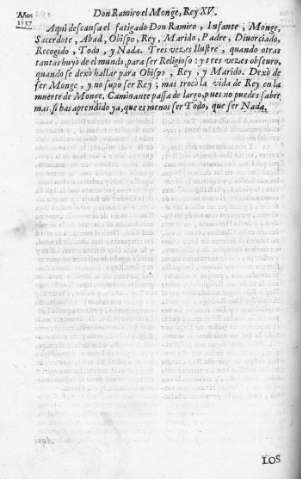 Don Ramiro el Monge, Rey XV.
Mon
1137
Aqui descansa el fatigado Don Ramiro, Infante, Monge,
Sacerdote, Abad, Obispo, Rey, Marido, Padre, Divorciado,
Recogido, Todo, y Nada. Tres vezes Ilustre, quando otras
tantas huyò de el mundo, para ser Religioso: y tres vezes obscuro,
quando se dexò hallar para Obispo, Rey, y Marido. Dexò de
ser Monge, y no supo ser Rey; mas trocò la vida de Rey en la
muerte de Monge. Caminante passa de largo, pues no puedes saber
mas, si has aprendido ya, que es menos ser Todo, que ser Nada.
LOS